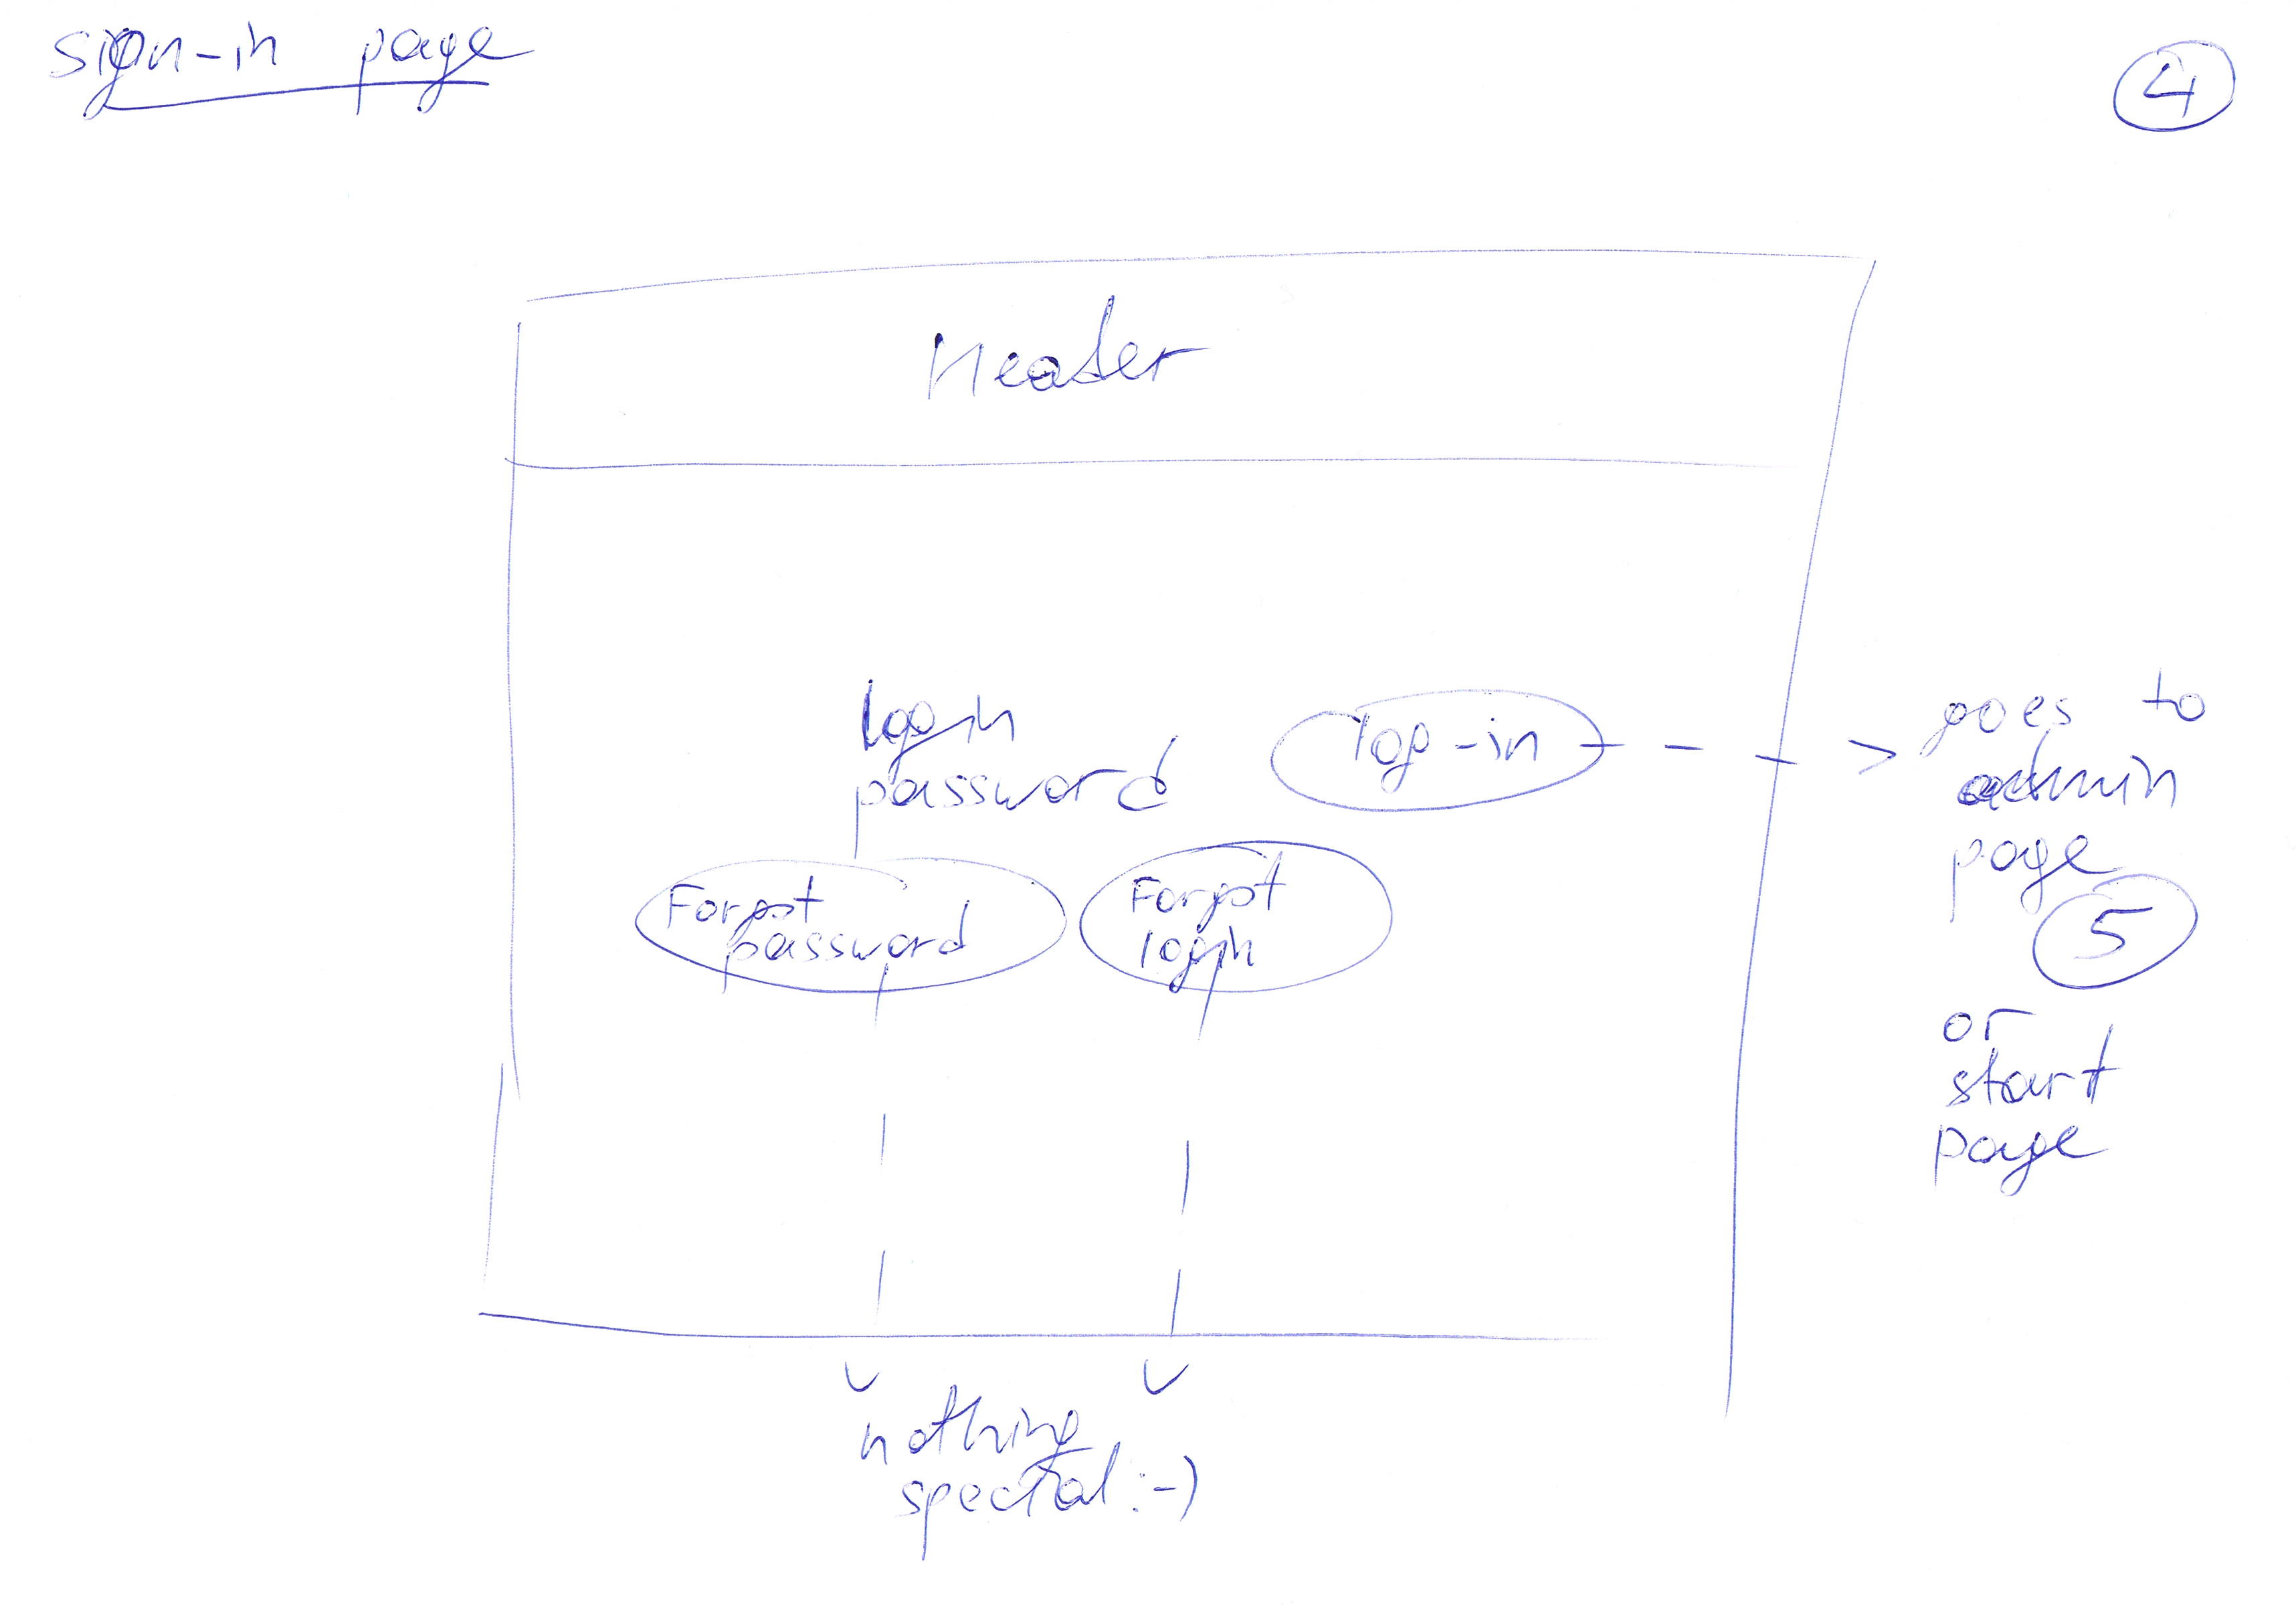 sign-in page
4
Header
login
password
log-in
goes to
admin
page
5
or
start
page
Forgot
password
Forgot
login
nothing
special :-)